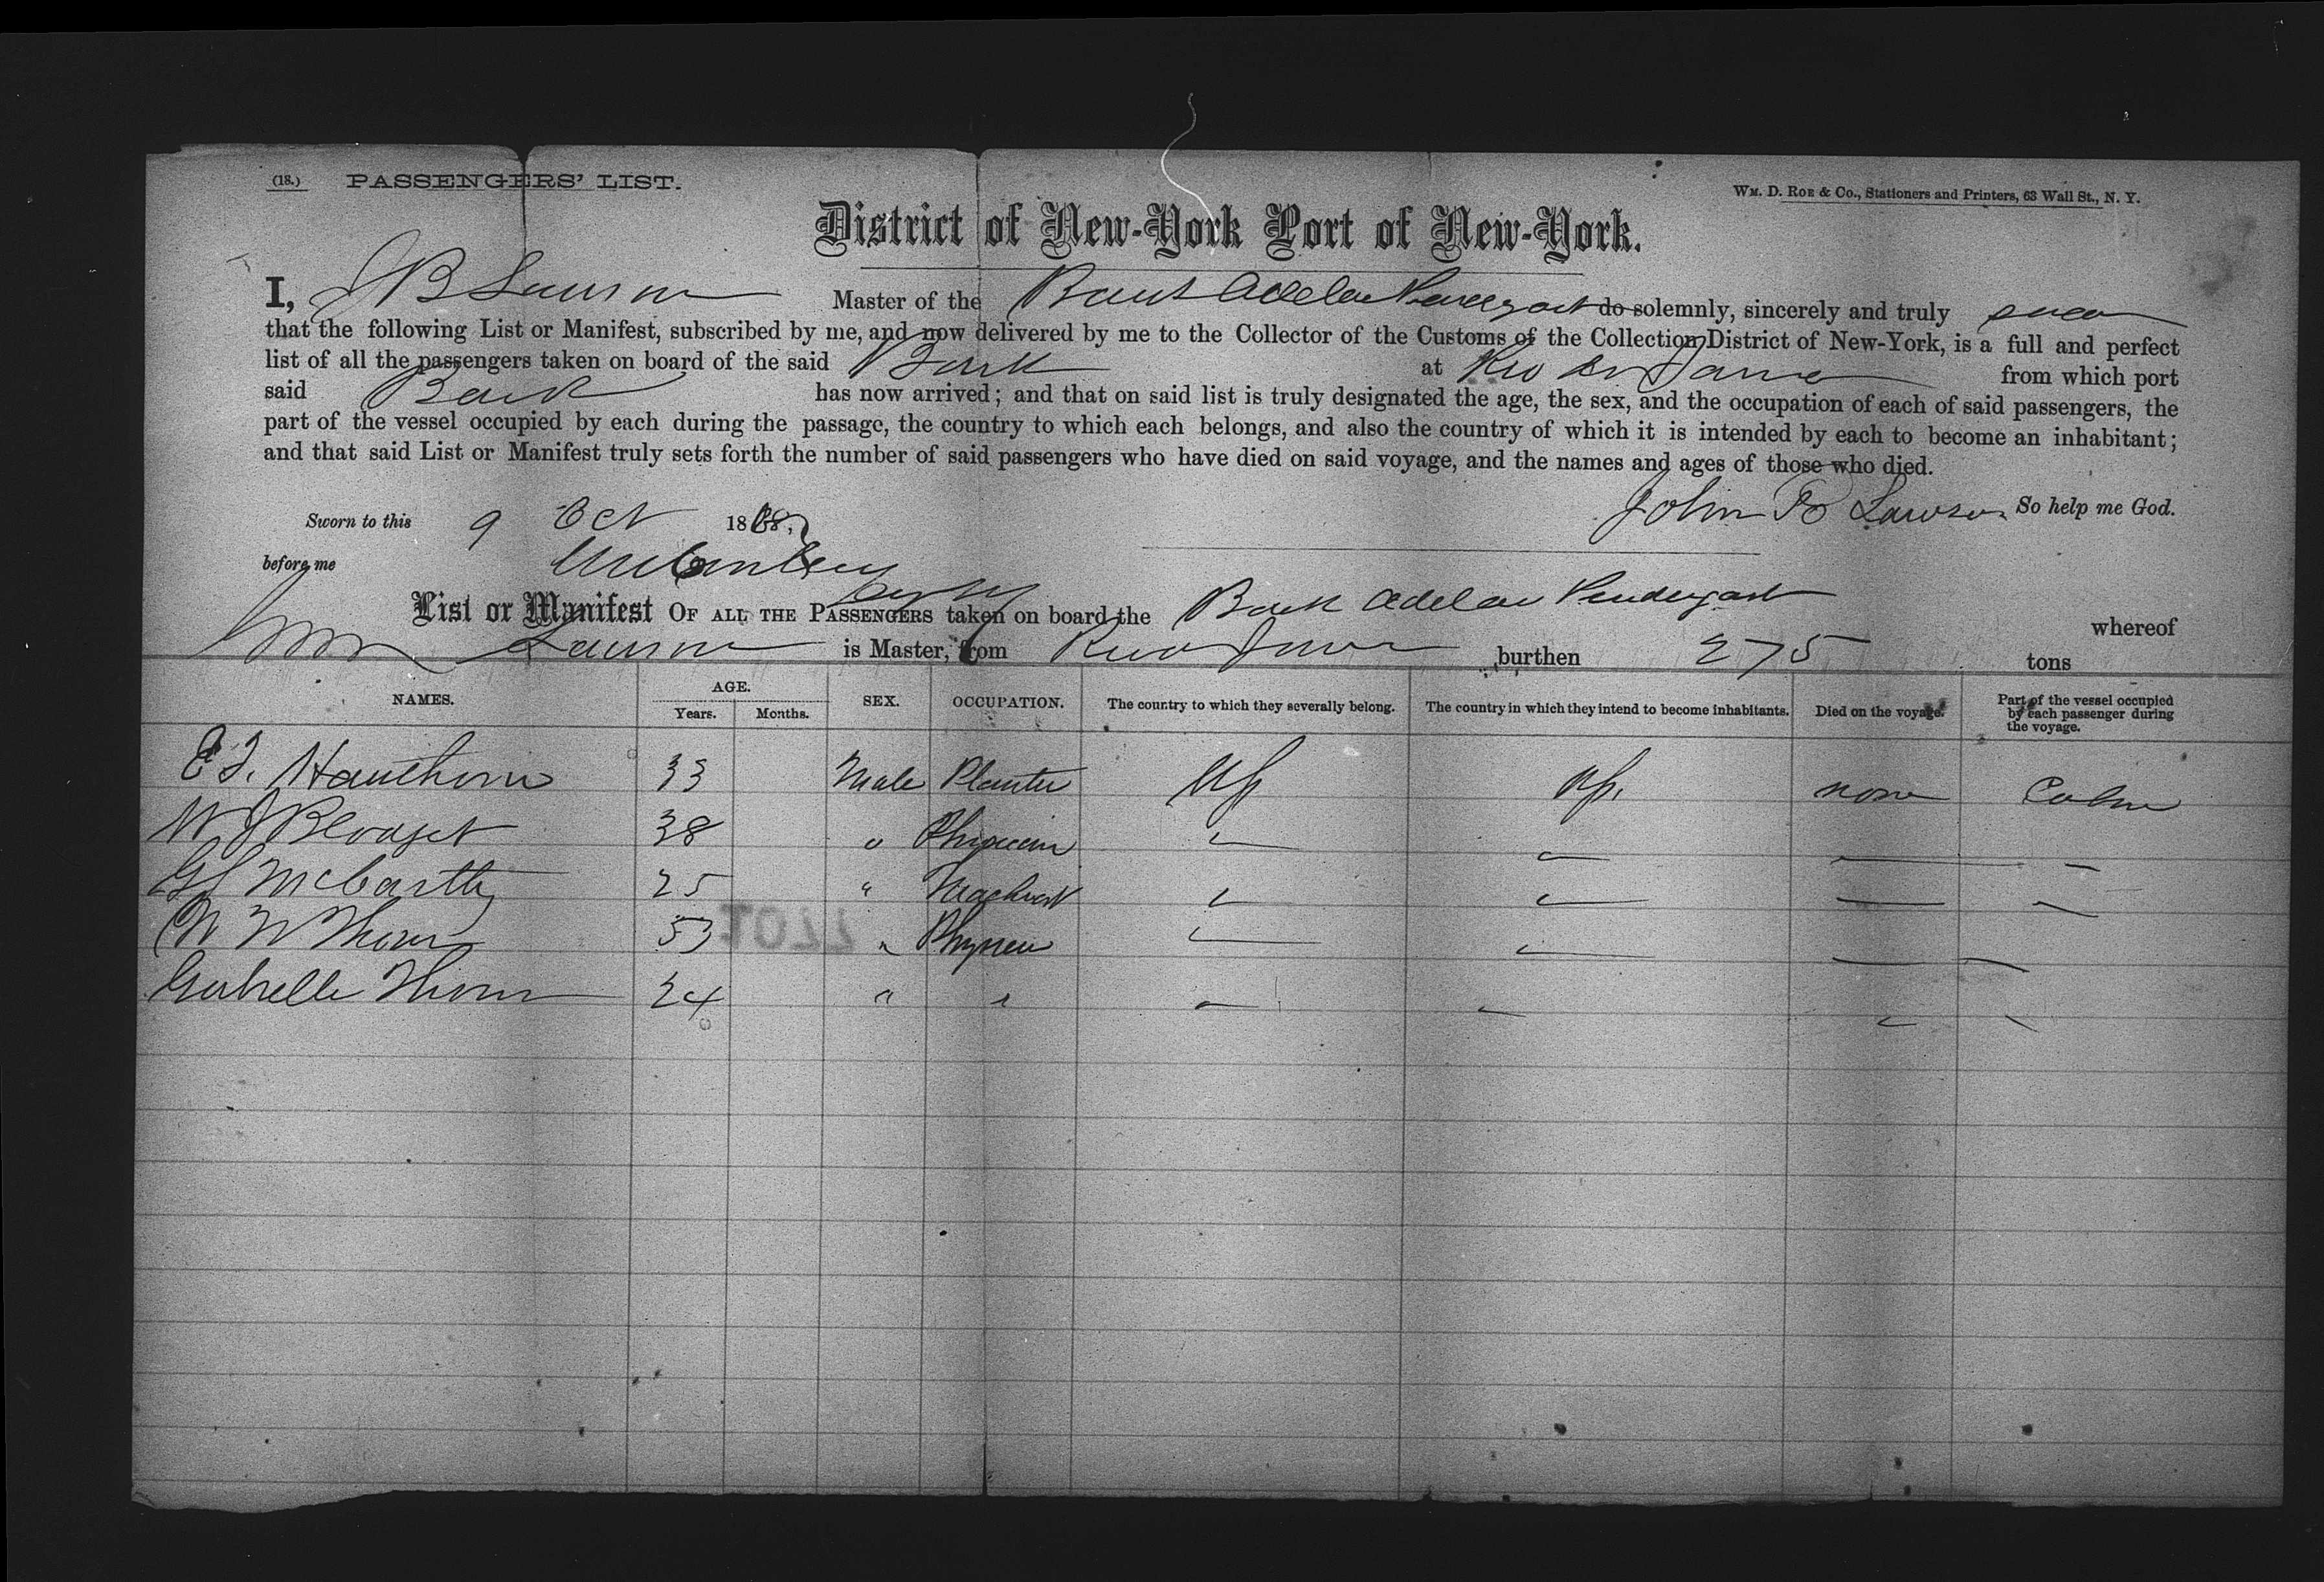 (18.) PASSENGERS' LIST.
WM. D. ROE & Co., Stationers and Printers, 63 Wall St., N. Y.
District of New-York Port of New-York.
I, J B Lawson Master of the Bark Adelae Pendergast do solemnly, sincerely and truly swear
that the following List or Manifest, subscribed by me, and now delivered by me to the Collector of the Customs of the Collection District of New-York, is a full and perfect
list of all the passengers taken on board of the said Bark at Rio de Janeiro from which port
said Bark has now arrived; and that on said list is truly designated the age, the sex, and the occupation of each of said passengers, the
part of the vessel occupied by each during the passage, the country to which each belongs, and also the country of which it is intended by each to become an inhabitant;
and that said List or Manifest truly sets forth the number of said passengers who have died on said voyage, and the names and ages of those who died.
John B Lawson So help me God.
Sworn to this 9 Oct 1868,
before me
List or Manifest OF ALL THE PASSENGERS taken on board the Bark Adelae Pendergast whereof
Lawson is Master, from Rio Janeiro burthen 275 tons
NAMES. AGE. Years. Months. SEX. OCCUPATION. The country to which they severally belong. The country in which they intend to become inhabitants. Died on the voyage. Part of the vessel occupied by each passenger during the voyage.
E J. Hawthorn 33 Male Planter US US. none Cabin
W J Blodget 38 " Physician
G S McCarthy 25 " Machinist
W W Thorn 53 " Physician
Gabrielle Thorn 24 " "